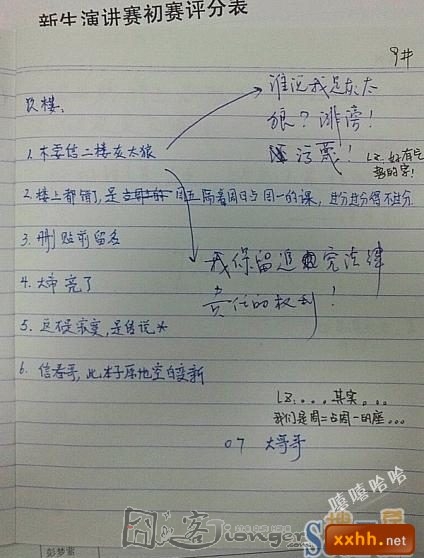 新生演讲赛初赛评分表
9#
跟楼:
谁说我是灰太
狼?诽谤!
污蔑!
LZ:好有气
势的字!
1.不要信二楼灰太狼
2.楼上都错了,是周五隔着周日占周一的课,过分过分得不过分
3.删贴前留名
我保留追究法律
责任的权利!
4.大帝亮了
5.这不是寂寞,是传说*
6.信春哥,此本子原地空白变新
LZ:。。。其实。。。
我们是周二占周一的座...
07 大哥哥
嘻嘻哈哈
囧客
Jionger.com
xxhh.net
彭梦